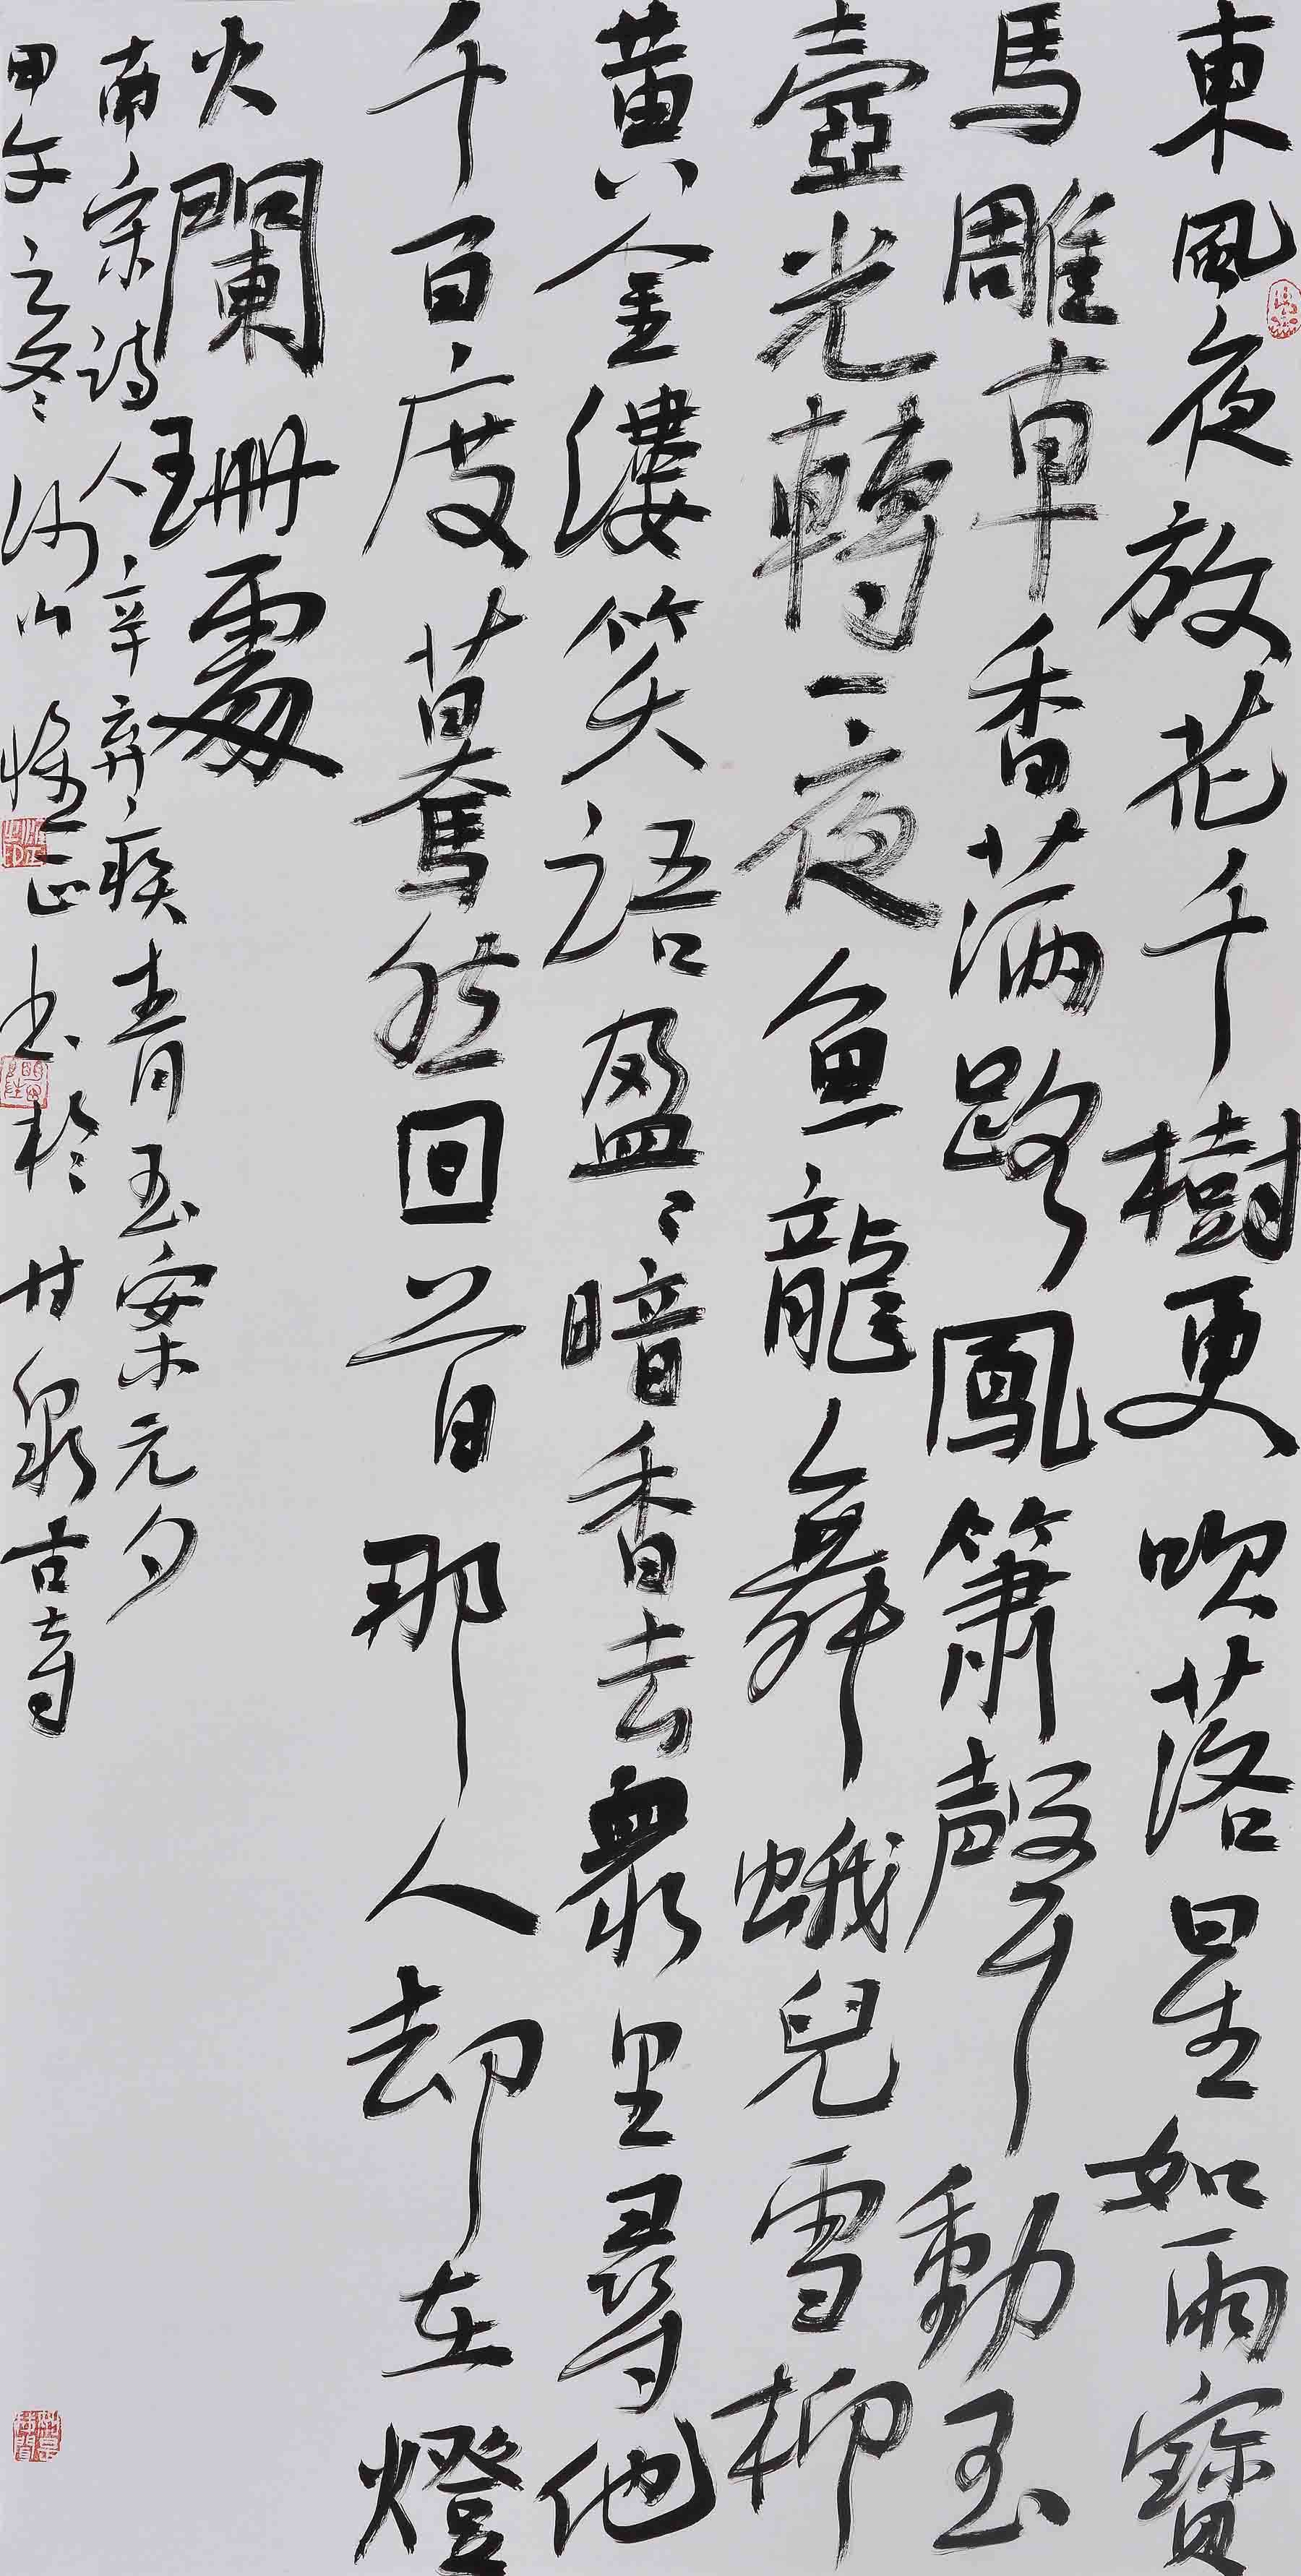 東風夜放花千樹更吹落星如雨寶
馬雕車香滿路鳳簫聲動玉
壺光轉一夜魚龍舞蛾兒雪柳
黃金縷笑語盈〻暗香去衆里尋他
千百度蓦然回首那人却在燈
火闌珊處
南宋詩人辛弃疾青玉案元夕
甲午之冬 山 正書於甘泉古寺